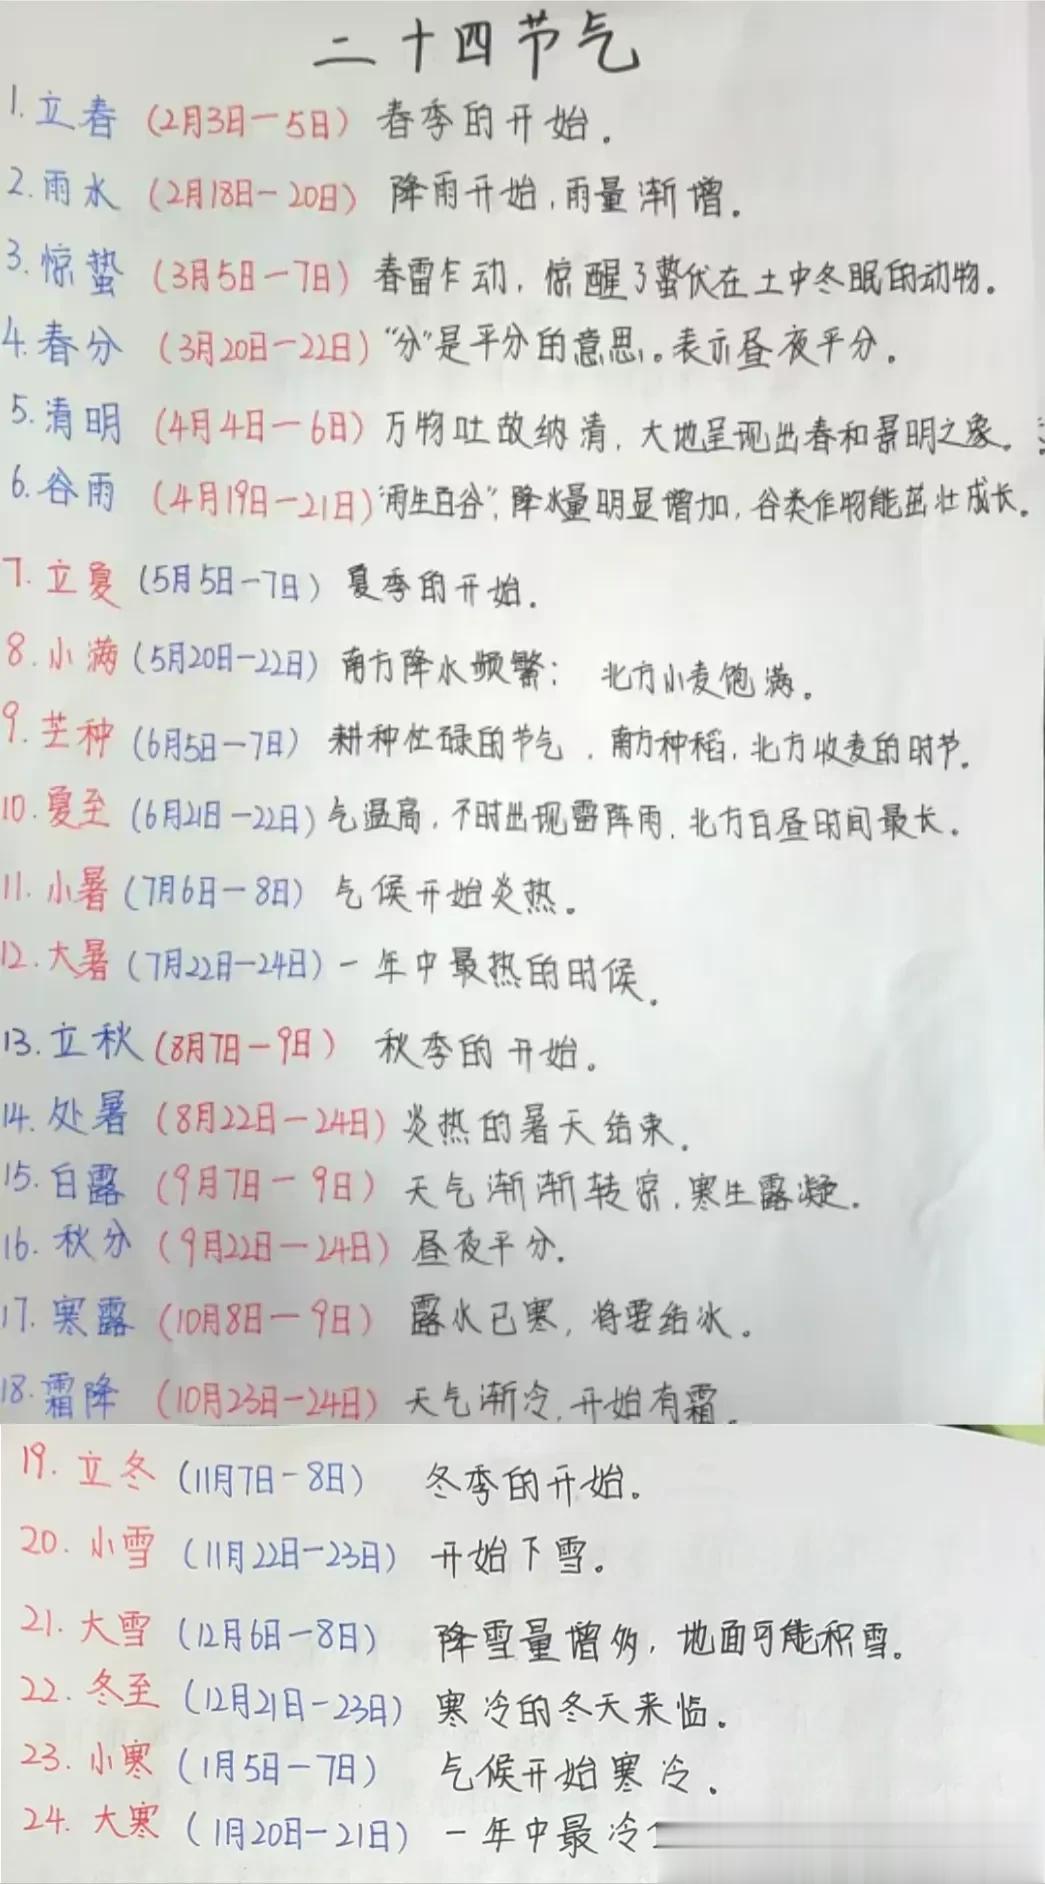 二十四节气
1.立春(2月3日—5日)春季的开始.
2.雨水(2月18日—20日)降雨开始,雨量渐增。
3.惊蛰(3月5日—7日)春雷乍动,惊醒了蛰伏在土中冬眠的动物。
4.春分(3月20日—22日)“分”是平分的意思。表示昼夜平分。
5.清明(4月4日—6日)万物吐故纳清,大地呈现出春和景明之象。
6.谷雨(4月19日—21日)“雨生百谷”,降水量明显增加,谷类作物能茁壮成长。
7.立夏(5月5日—7日)夏季的开始.
8.小满(5月20日—22日)南方降水频繁;北方小麦饱满。
9.芒种(6月5日—7日)耕种忙碌的节气.南方种稻,北方收麦的时节。
10.夏至(6月21日—22日)气温高,不时出现雷阵雨,北方白昼时间最长。
11.小暑(7月6日—8日)气候开始炎热。
12.大暑(7月22日—24日)一年中最热的时候。
13.立秋(8月7日—9日)秋季的开始。
14.处暑(8月22日—24日)炎热的暑天结束.
15.白露(9月7日—9日)天气渐渐转凉,寒生露凝。
16.秋分(9月22日—24日)昼夜平分.
17.寒露(10月8日—9日)露水已寒,将要结冰。
18.霜降(10月23日—24日)天气渐冷,开始有霜。
19.立冬(11月7日—8日)冬季的开始。
20.小雪(11月22日—23日)开始下雪。
21.大雪(12月6日—8日)降雪量增多,地面可能积雪。
22.冬至(12月21日—23日)寒冷的冬天来临。
23.小寒(1月5日—7日)气候开始寒冷.
24.大寒(1月20日—21日)一年中最冷